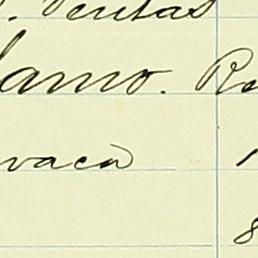 . Ventas
lamo. Re
vaca 1
8